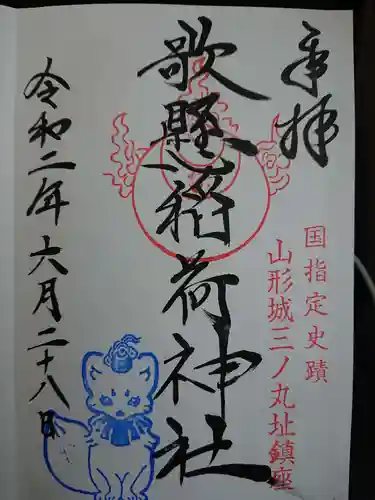 奉拝
国指定史蹟
山形城三ノ丸址鎮座
歌懸稲荷神社
令和二年六月二十八日